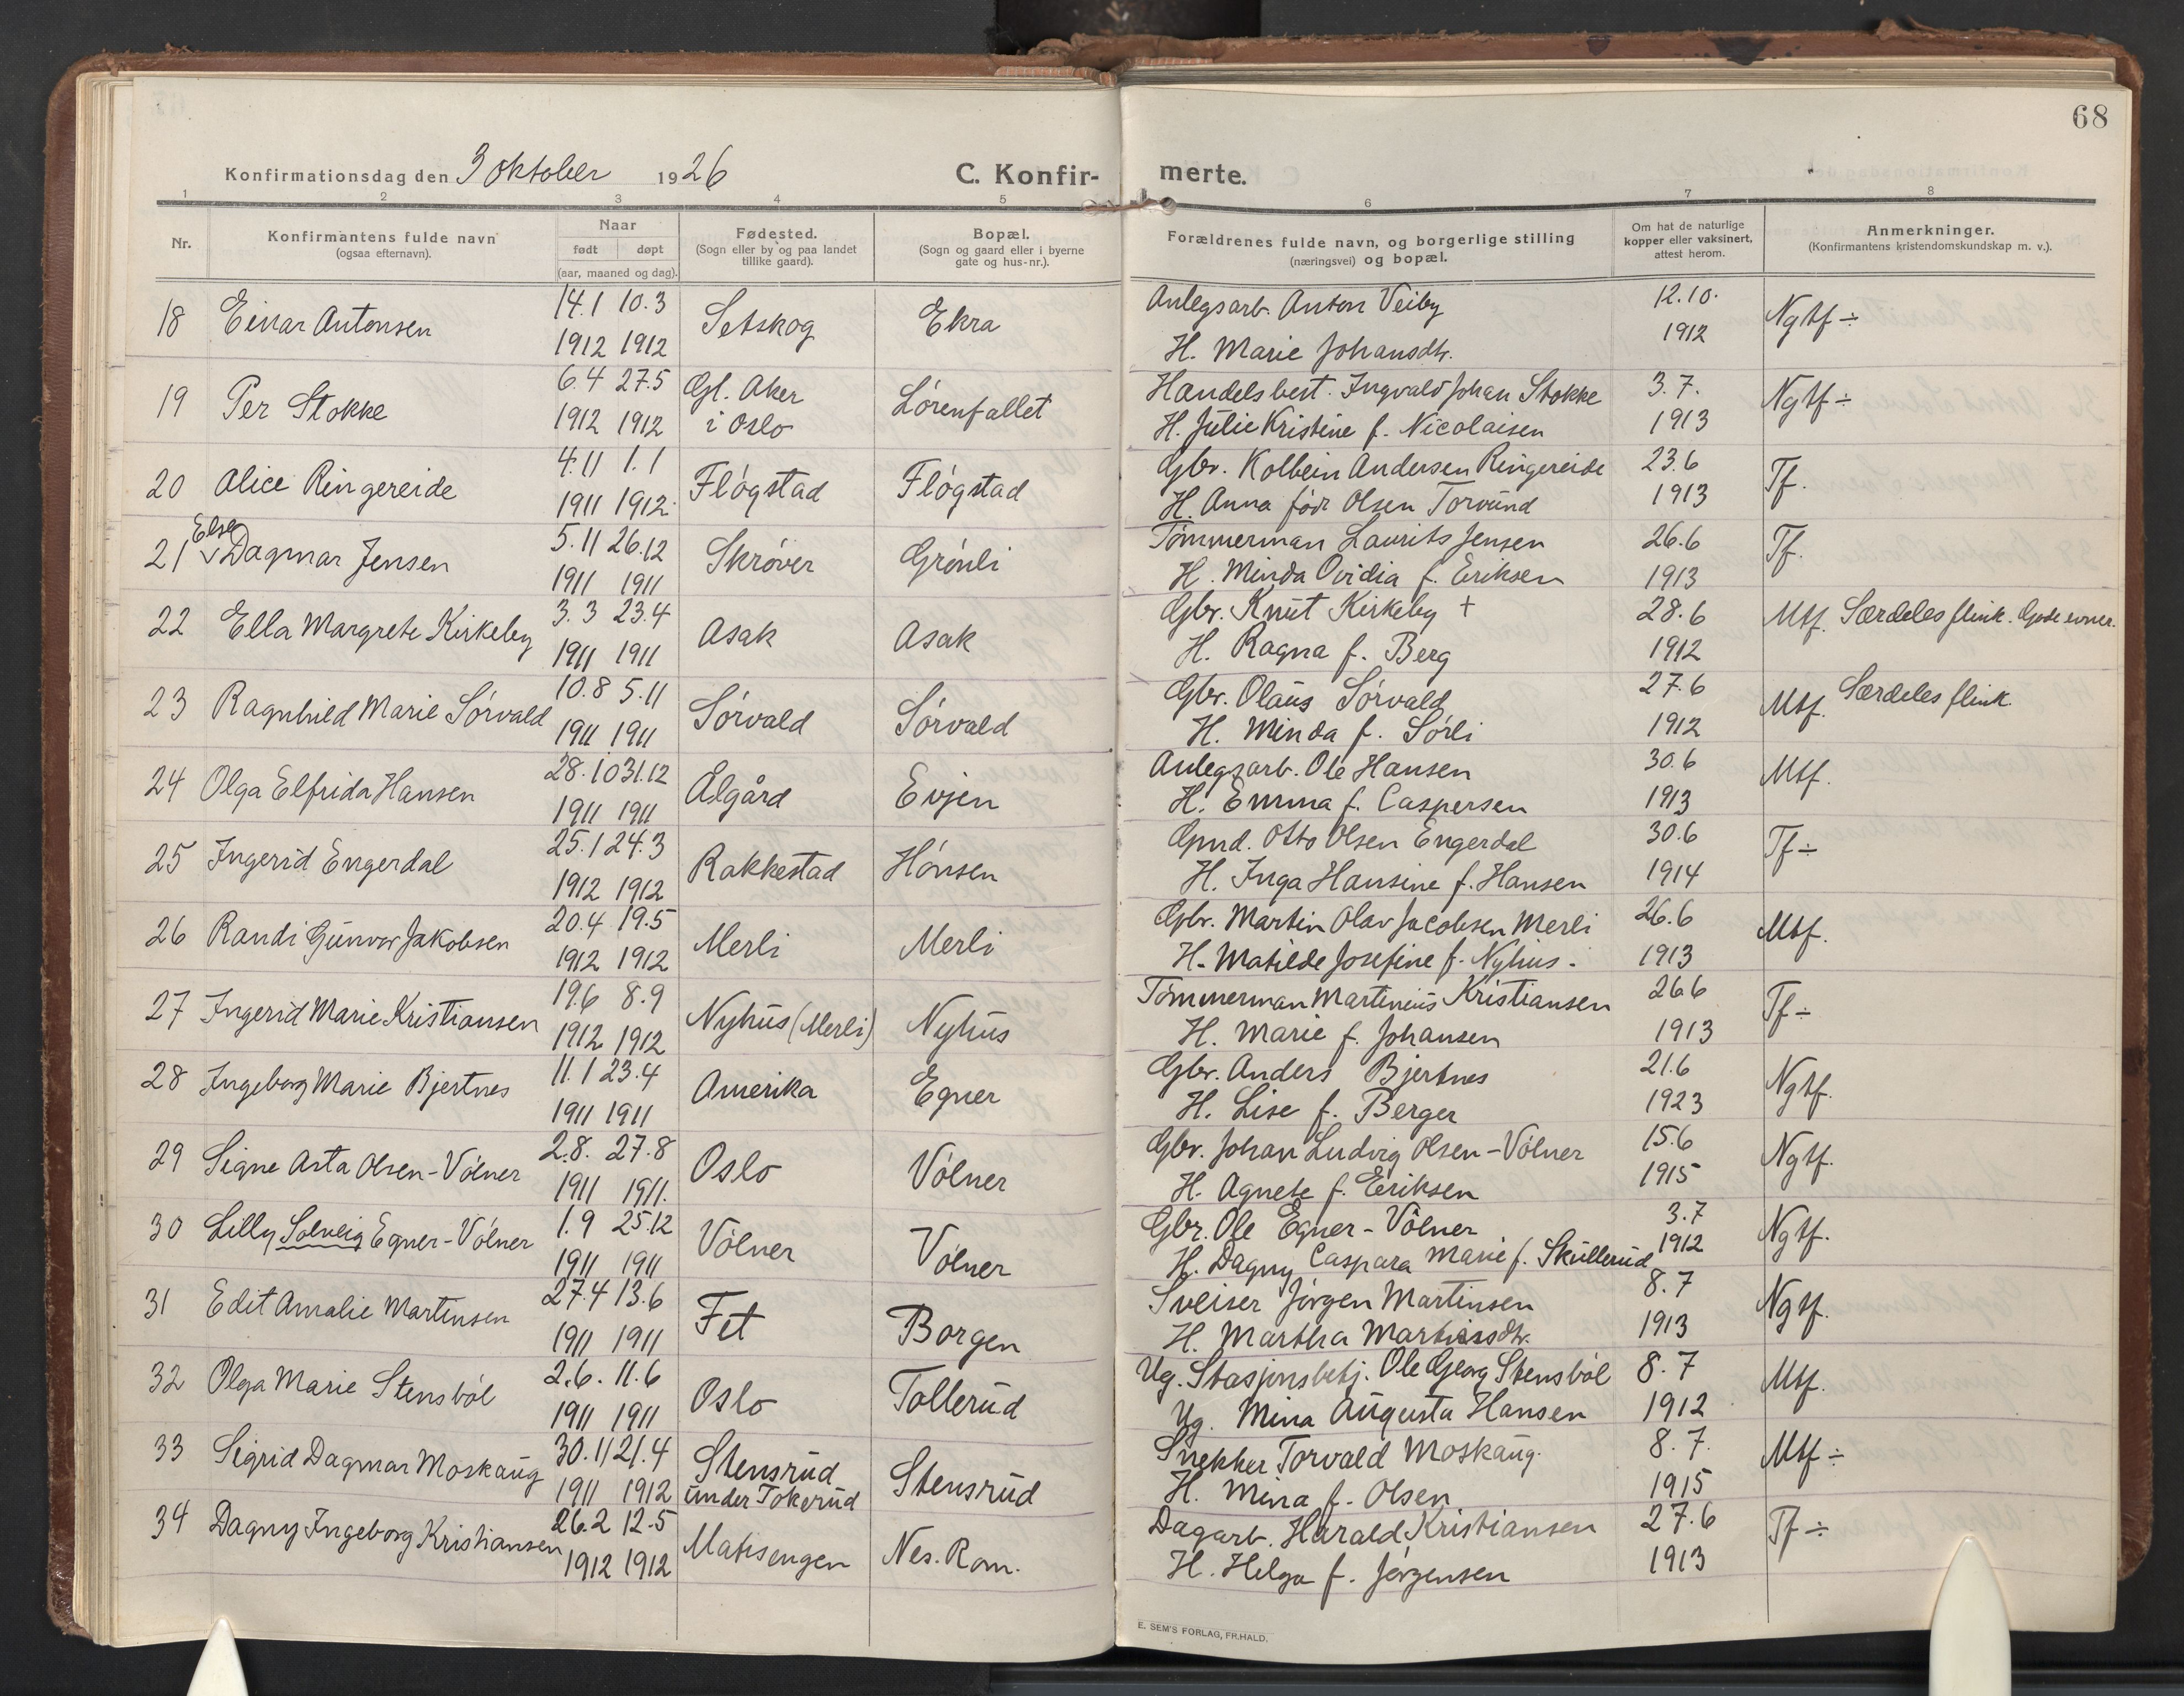 68
Konfirmationsdag den 3 oktober 1926 C. Konfir- merte.
1 2 3 4 5 6 7 8
Nr. Konfirmantens fulde navn (ogsaa efternavn). Naar født døpt (aar, maaned og dag). Fødested. (Sogn eller by og paa landet tillike gaard). Bopæl. (Sogn og gaard eller i byerne gate og hus-nr.). Forældrenes fulde navn, og borgerlige stilling (næringsvei) og bopæl. Om hat de naturlige kopper eller vaksinert, attest herom. Anmerkninger. (Konfirmantens kristendomskundskap m. v.).
18 Einar Antonsen 14.1 10.3 Setskog Ekra Anlegsarb. Anton Veiby 12.10. Ngtf ÷
1912 1912 H. Marie Johansdtr. 1912
19 Per Stokke 6.4 27.5 Gl. Aker Lörenfallet Handelsbest. Ingvald Johan Stokke 3.7. Ngtf ÷
1912 1912 i Oslo H. Julie Kristine f. Nicolaisen 1913
20 Alice Ringereide 4.11 1.1 Flögstad Flögstad Gbr. Kolbein Andersen Ringereide 23.6 Tf.
1911 1912 H. Anna född Olsen Torvund 1913
21 Else Dagmar Jensen 5.11 26.12 Skröver Grönli Tömmerman Laurits Jensen 26.6 Tf.
1911 1911 H. Minda Ovidia f. Eriksen 1913
22 Ella Margrete Kirkeby 3.3 23.4 Asak Asak Gbr. Knut Kirkeby + 28.6 Mtf. Særdeles flink. Gode evner.
1911 1911 H. Ragna f. Berg 1912
23 Ragnhild Marie Sörvald 10.8 5.11 Sörvald Sörvald Gbr. Olaus Sörvald 27.6 Mtf. Særdeles flink.
1911 1911 H. Minda f. Sörli 1912
24 Olga Elfrida Hansen 28.10 31.12 Ålgård Evjen Anlegsarb. Ole Hansen 30.6 Mtf.
1911 1911 H. Emma f. Caspersen 1913
25 Ingerid Engerdal 25.1 24.3 Rakkestad Hönsen Gmd. Otto Olsen Engerdal 30.6 Tf ÷
1912 1912 H. Inga Hansine f. Hansen 1914
26 Randi Gunvor Jakobsen 20.4 19.5 Merli Merli Gbr. Martin Olav Jacobsen Merli 26.6 Mtf.
1912 1912 H. Matilde Josefine f. Nyhus. 1913
27 Ingerid Marie Kristiansen 19.6 8.9 Nyhus (Merli) Nyhus Tömmerman Martinius Kristiansen 26.6 Tf ÷
1912 1912 H. Marie f. Johansen 1913
28 Ingeborg Marie Bjertnes 11.1 23.4 Amerika Egner Gbr. Anders Bjertnes 21.6 Ngtf.
1911 1911 H. Lise f. Berger 1923
29 Signe Asta Olsen-Völner 2.8. 27.8 Oslo Völner Gbr. Johan Ludvig Olsen-Völner 15.6 Ngtf.
1911 1911. H. Agnete f. Eriksen 1915
30 Lilly Solveig Egner-Völner 1.9 25.12 Völner Völner Gbr. Ole Egner-Völner 3.7 Ngtf.
1911 1911 H. Dagny Caspara Marie f. Skullerud 1912
31 Edit Amalie Martinsen 27.4 13.6 Fet Borgen Sveiser Jörgen Martinsen 8.7 Ngtf.
1911 1911 H. Martha Martinsdtr. 1913
32 Olga Marie Stensböl 2.6. 11.6 Oslo Tollerud Ug. Stasjonsbetj. Ole Georg Stensböl 8.7 Mtf.
1911 1911 Ug. Mina Augusta Hansen 1912
33 Sigrid Dagmar Moskaug 30.11 21.4 Stensrud Stensrud Snekker Torvald Moskaug. 8.7. Mtf ÷
1911 1912 under Tokerud H. Mina f. Olsen 1915
34 Dagny Ingeborg Kristiansen 26.2 12.5 Matisengen Nes. Rom. Dagarb. Harald Kristiansen 27.6 Tf ÷
1912 1912 H. Helga f. Jörgensen 1913
E. SEM'S FORLAG, FR.HALD.